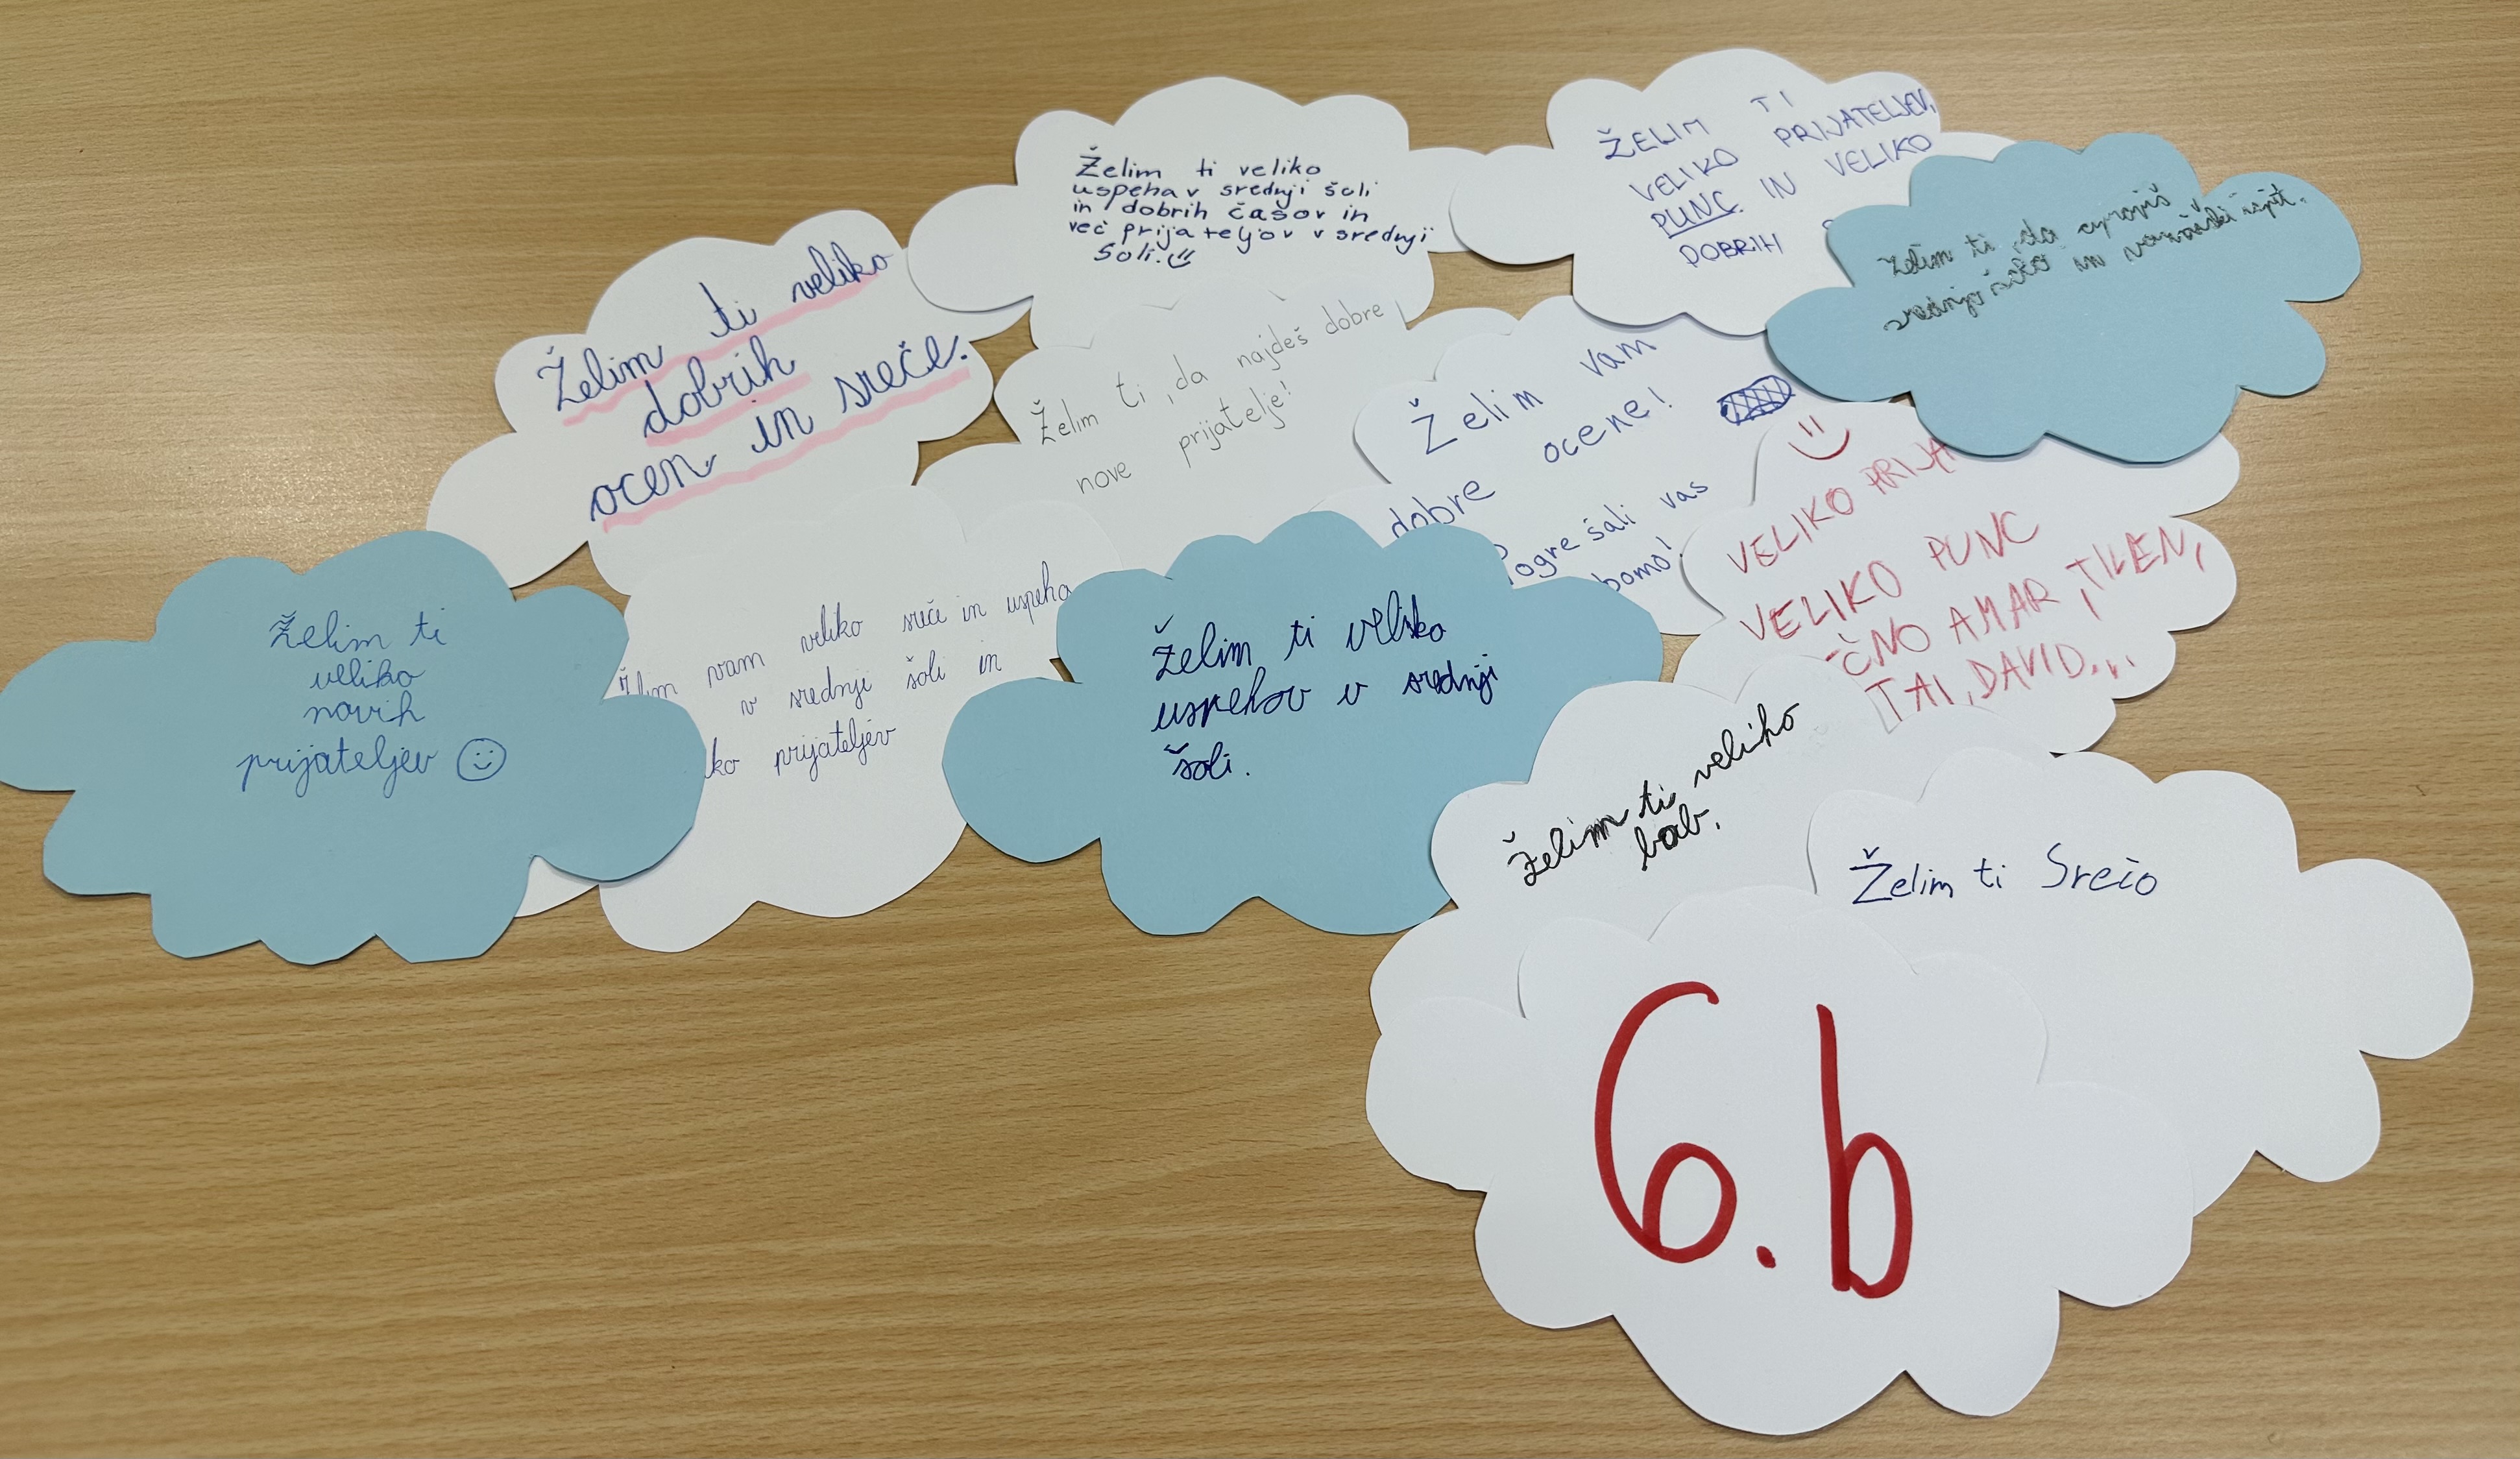 Želim ti veliko
uspeha v srednji šoli
in dobrih časov in
več prijateljov v srednji
šoli.
ŽELIM TI
VELIKO PRIJATELJEV,
PUNC IN VELIKO
DOBRIH
Želim ti, da opraviš
srednjo šolo in vozniški ispit.
Želim ti veliko
dobrih
ocen in sreče.
Želim ti, da najdeš dobre
nove prijatelje!
Želim vam
dobre ocene!
Pogrešali vas
bomo!
VELIKO PRIJA
VELIKO PUNC
ČNO AMAR, TILEN,
TAI, DAVID...
Želim ti
veliko
novih
prijateljev
Želim vam veliko sreče in uspeha
v srednji šoli in
ko prijateljev
Želim ti veliko
uspehov v srednji
šoli.
Želim ti veliko
bab.
Želim ti Srečo
6.b